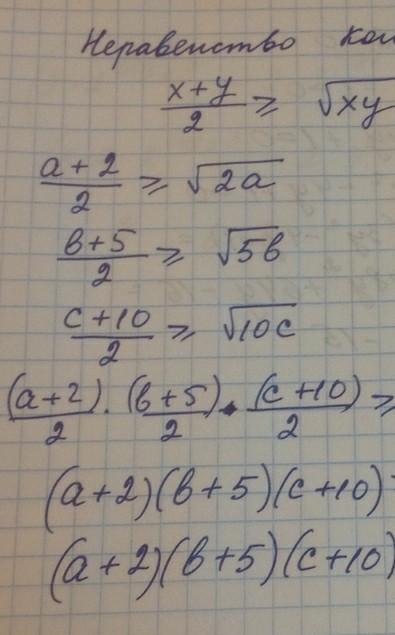 Неравенство
x+y/2 ≥ √xy
a+2/2 ≥ √2a
в+5/2 ≥ √5в
c+10/2 ≥ √10c
(a+2)/2 · (в+5)/2 · (c+10)/2 ≥
(a+2)(в+5)(c+10)
(a+2)(в+5)(c+10)